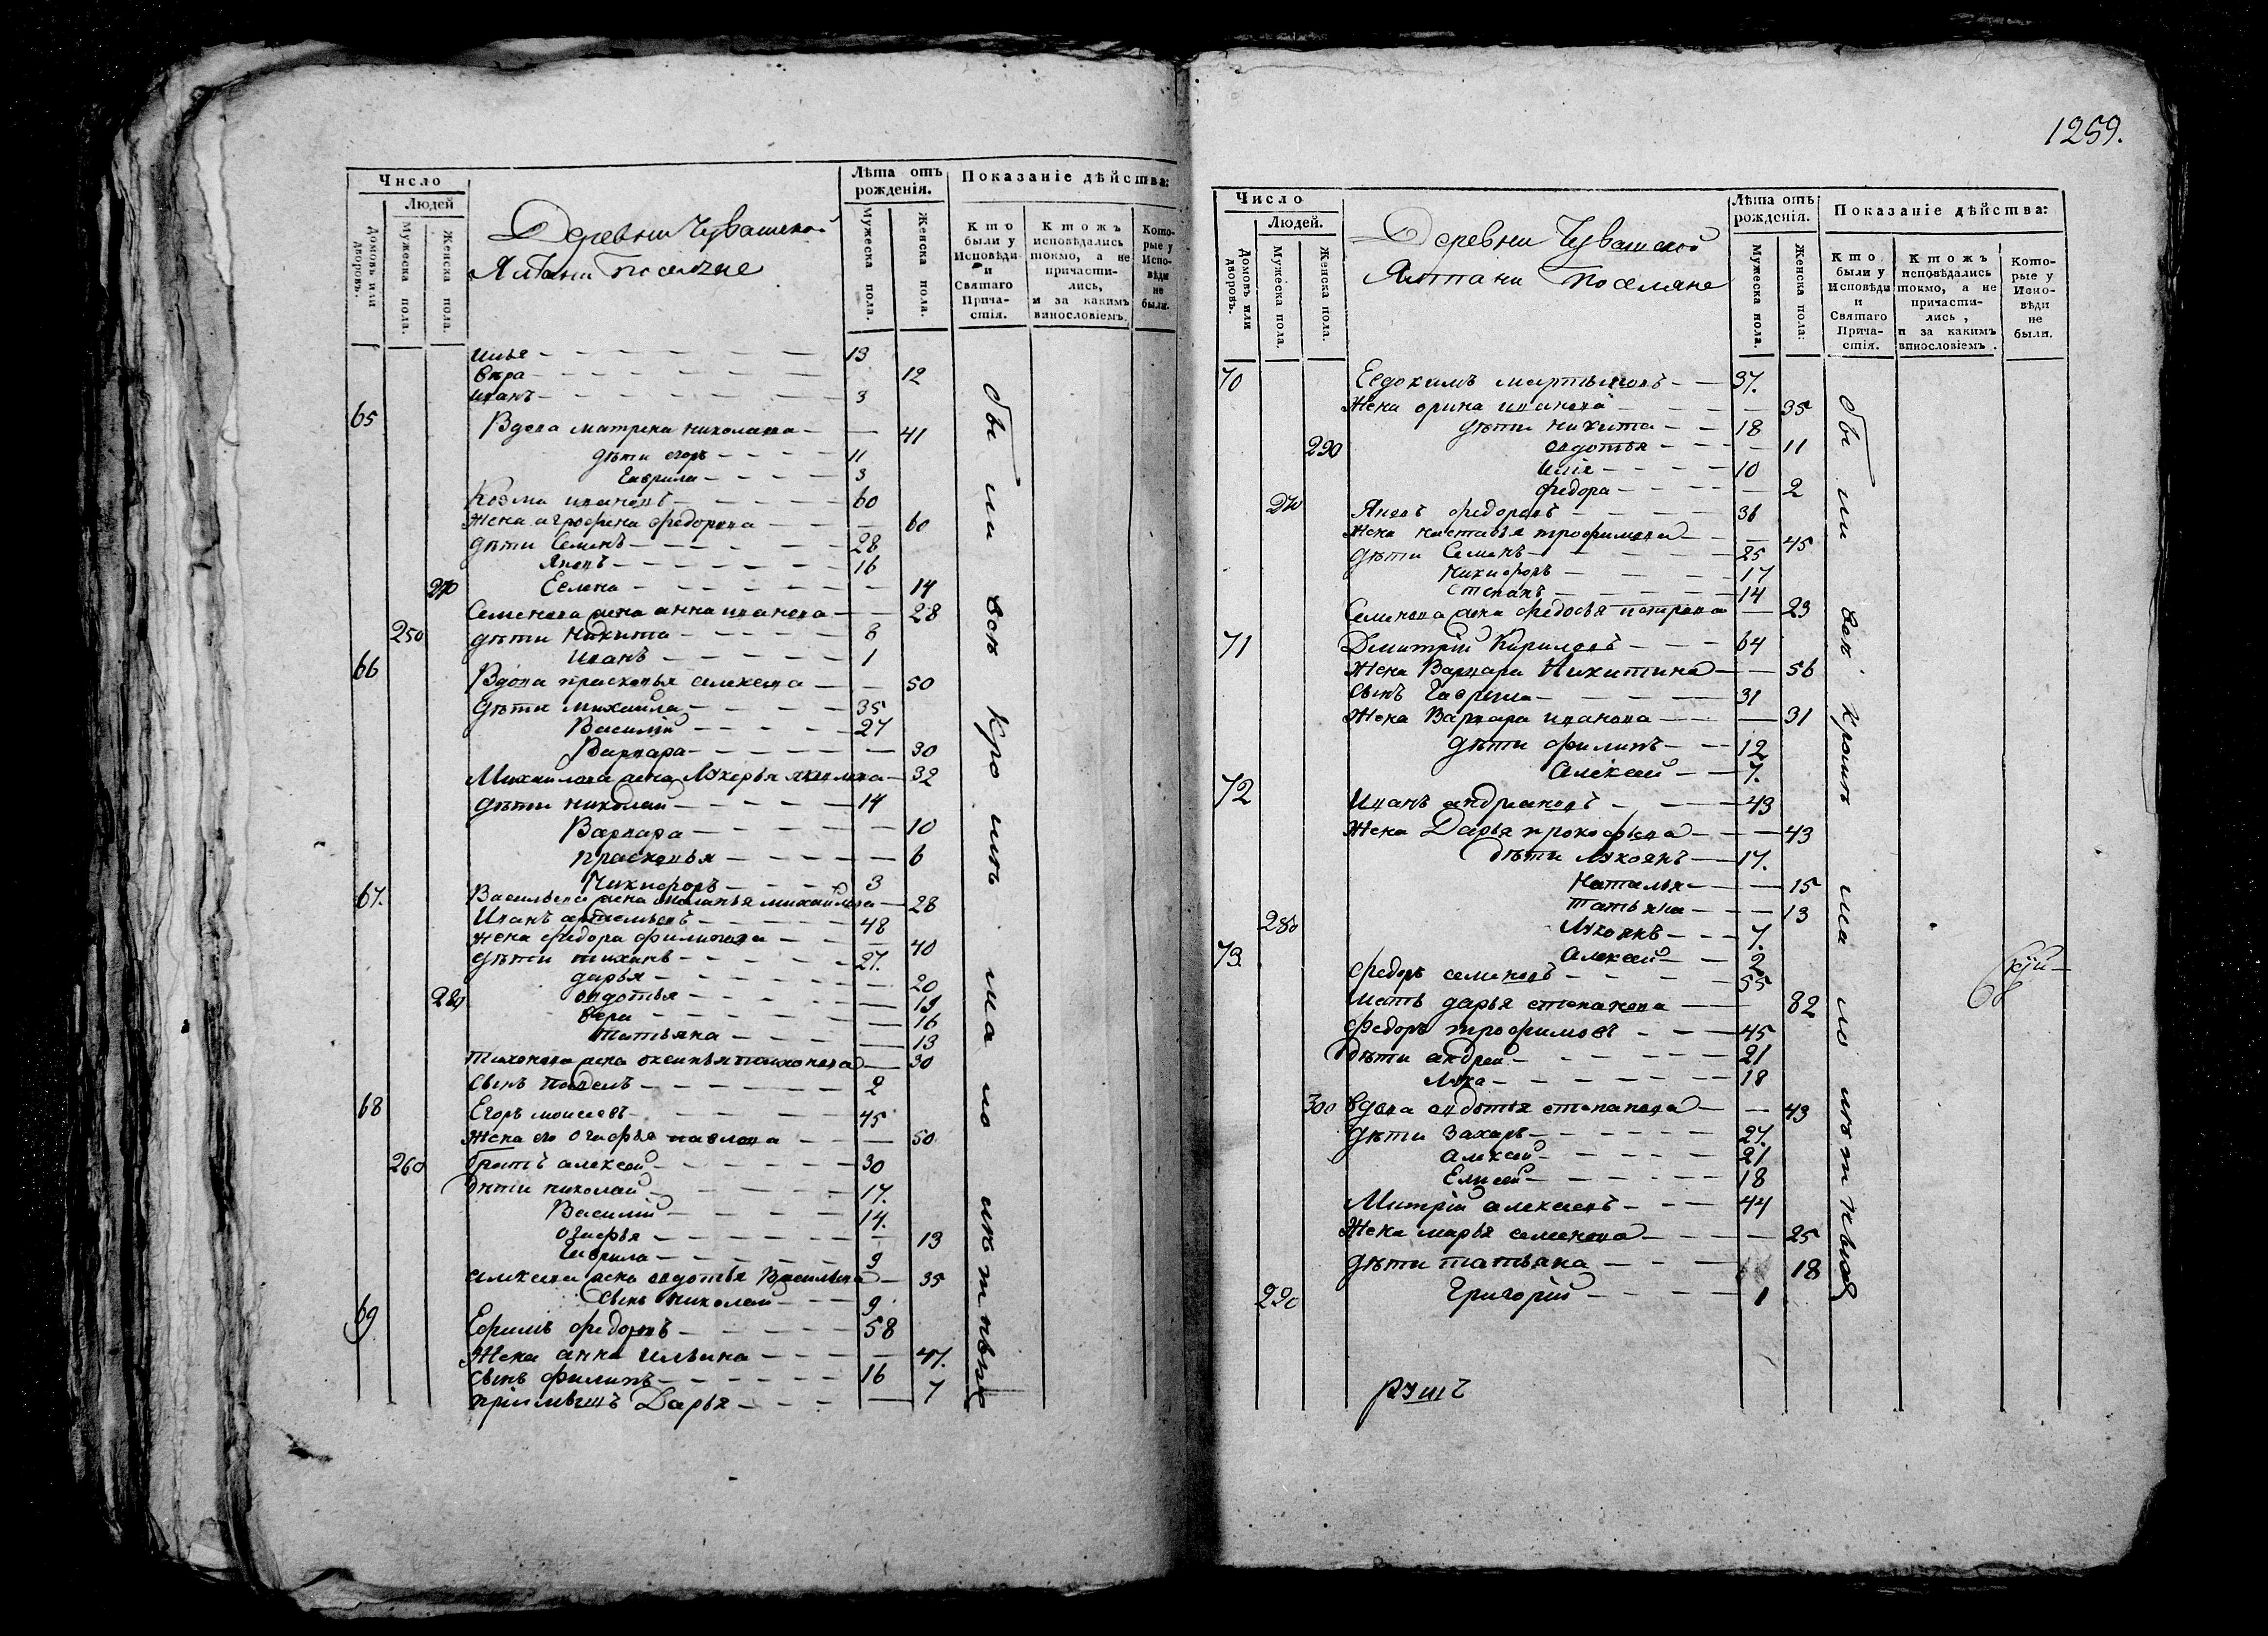 Число
Людей
Домовъ или дворовъ.
Мужеска пола.
Женска пола.
Деревни Чувашской
Алтани поселяне
Лѣта отъ рожденія.
Мужеска пола.
Женска пола.
Показаніе дѣйства:
Кто были у Исповѣди и Святаго Причастія.
Ктожъ исповѣдались токмо, а не причастились, и за какимъ винословіемъ.
Которые у Исповѣди не были.
Илья 13
Вѣра 12
Иванъ 3
65 Вдова матрена николаева 41
дѣти егоръ 11
Гаврила 3
Козма ивановъ 60
Жена агрофена федорова 60
дѣти Семенъ 28
Яковъ 16
270 Еелена 14
Семенова жена анна иванова 28
250 дѣти никита 8
Иванъ 1
66 Вдова прасковья алексеева 50
дѣти михаила 35
Василій 27
Варвара 30
Михаилова жена Лукерья 32
дѣти николай 14
Варвара 10
прасковья 6
Никифоръ 3
67. Васильева жена маланья михайлова 28
Иванъ артемьевъ 48
жена федора филипова 40
дѣти тиханъ 27.
дарья 20
280 овдотья 19
вера 16
татьяна 13
тихонова жена оксинья тихонова 30
сынъ павелъ 2
68 Егоръ моисеевъ 45
Жена его огафья павлова 50
260 братъ алексей 30
дѣти николай 17.
Василій 14.
огафья 13
Гаврила 9
алексеева жена овдотья Васильева 35
сынъ николай 9
69 Ефимъ федоровъ 58
Жена анна ильина 47.
сынъ филипъ 16
пріимышъ Дарья 7
были всѣ кромѣ малолѣтныхъ
1259.
Число
Людей.
Домовъ или дворовъ.
Мужеска пола.
Женска пола.
Деревни Чувашской
Алтани поселяне
Лѣта отъ рожденія.
Мужеска пола.
Женска пола:
Показаніе дѣйства:
Кто были у Исповѣди и Святаго Причастія.
Ктожъ исповѣдались токмо, а не причастились, и за какимъ винословіемъ.
Которые у Исповѣди не были.
70 Евдокимъ мартыновъ 37.
Жена орина иванова 35
дѣти никита 18
290 овдотья 11
Илія 10
федора 2
270 Яковъ федоровъ 36
Жена настасья трофимова 45
дѣти Семенъ 25
Никифоръ 17
Степанъ 14
Семенова жена федосья петрова 23
71 Дмитрій Кириловъ 64
Жена Варвара Никитина 56
сынъ Гаврила 31
Жена Варвара иванова 31
дѣти филипъ 12
алексей 7.
72 Иванъ андреяновъ 43
Жена Дарья прокофьева 43
дѣти лукоянъ 17.
Наталья 15
татьяна 13
280 Лукоянъ 7.
алексей 2
73. федоръ семеновъ 55
мать дарья степанова 82
федоръ трофимовъ 45
дѣти андрей 21
лука 18
300 вдова овдотья степанова 43
дѣти Захаръ 27.
алексей 21
Елисей 18
Митрій алексеевъ 44
Жена марья семенова 25
дѣти татьяна 18
290 Григорій 1
были всѣ кромѣ малолѣтныхъ
68